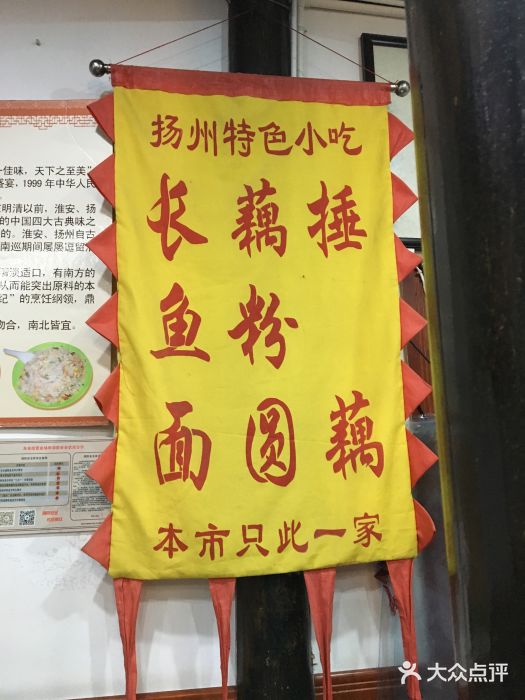 扬州特色小吃
长鱼面
藕粉圆
捶藕
本市只此一家
佳味，天下之至美”
盛宴，1999年中华人民
明清以前，淮安、扬
的中国四大古典味之
的。淮安、扬州自古
南巡期间屡屡逗留
适口，有南方的
从而能突出原料的本
纪”的烹饪纲领，鼎
吻合，南北皆宜。
大众点评